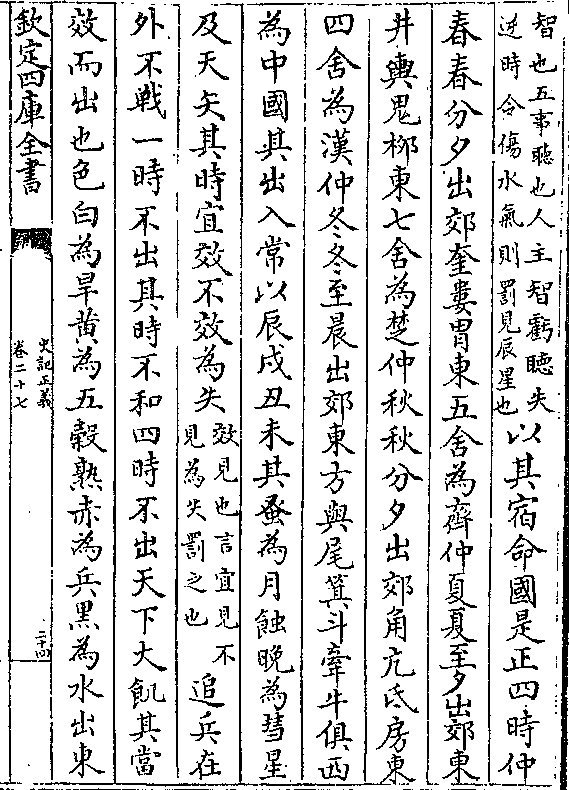 智也五事聴也人主智虧聴失
逆時令傷水氣則罰見辰星也
以其宿命國是正四時仲
春春分夕出郊奎婁胃東五舍為齊仲夏夏至夕出郊東
井輿鬼桞東七舍為楚仲秋秋分夕出郊角亢氐房東
四舍為漢仲冬冬至晨出郊東方與尾箕斗牽牛俱西
為中國其出入常以辰戌丑未其蚤為月蝕晚為彗星
及天矢其時宜效不效為失
效見也言宜見不
見為失罰之也
追兵在
外不戰一時不出其時不和四時不出天下大飢其當
效而出也色白為旱黄為五穀熟赤為兵黑為水出東
欽定四庫全書
史記正義
卷二十七
二十四